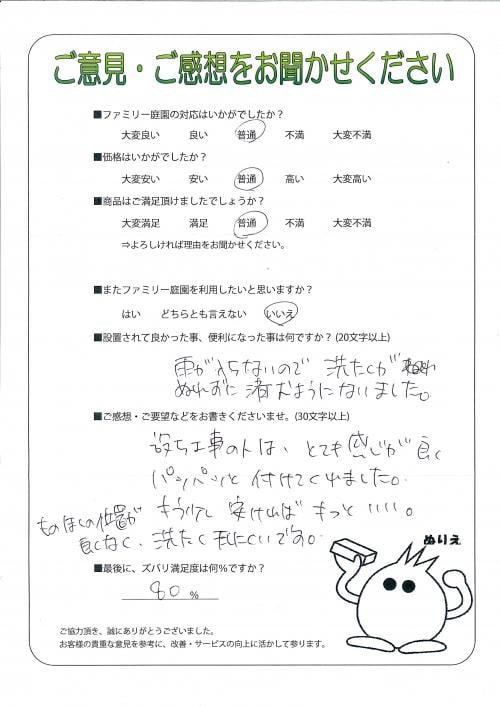 ご意見・ご感想をお聞かせください
■ファミリー庭園の対応はいかがでしたか？
大変良い 良い 普通 不満 大変不満
■価格はいかがでしたか？
大変安い 安い 普通 高い 大変高い
■商品はご満足頂けましたでしょうか？
大変満足 満足 普通 不満 大変不満
⇒よろしければ理由をお聞かせください。
■またファミリー庭園を利用したいと思いますか？
はい どちらとも言えない いいえ
■設置されて良かった事、便利になった事は何ですか？(20文字以上)
雨が入らないので 洗たくが
ぬれずに 済むようになりました。
■ご感想・ご要望などをお書きくださいませ。(30文字以上)
設ち工事の人は、とても感じが良く
パンパンと付けてくれました。
もう少し 安ければ もっと いいい。
ものほしの位置が
良くなく、洗たくしにくいです。
■最後に、ズバリ満足度は何％ですか？
80 %
ぬりえ
ご協力頂き、誠にありがとうございました。
お客様の貴重な意見を参考に、改善・サービスの向上に活かして参ります。